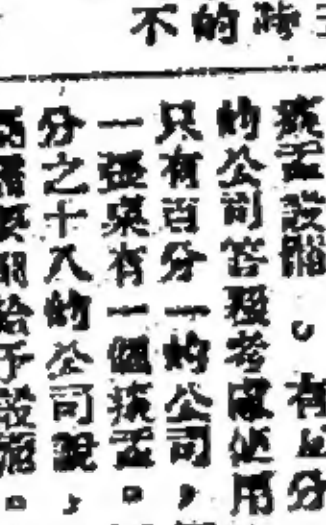 時
的
不
痰盂設備。有五分
的公司答考慮使用
只有百分一的公司，
一張桌有一個痰盂。
分之十八的公司說，
給予設施。